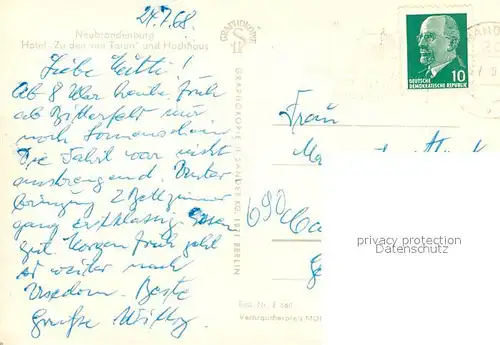 27.7.68.
Neubrandenburg
Hotel „Zu den vier Toren" und Hochhaus
Liebe Mutti!
Ab 8 Uhr heute früh
ab Bitterfeld nur
noch Sonnenschein
Die Fahrt war nicht
anstrengend. Unter
bringung 2 Bettzimmer
ganz erstklassig. Essen
gut. Morgen früh geht
es weiter nach
Usedom. Beste
Grüße
GRAPHOKOPIE
GRAPHOKOPIE H. SANDER KG, 1071 BERLIN
Best.-Nr. E 660
Verbraucherpreis MDN
10
DEUTSCHE
DEMOKRATISCHE REPUBLIK
Frau
690
privacy protection
Datenschutz